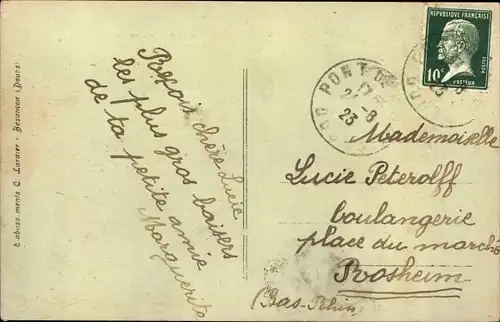 Etabliss. mente C. Lardier - Besançon (Doubs)
Reçois chère Lucie
les plus gros baisers
de ta petite amie
Marguerite
RÉPUBLIQUE FRANÇAISE
POSTES
10c
PASTEUR
PONT DE
17
2 -8
23
Mademoiselle
Lucie Peterolff
boulangerie
place du marché
Rosheim
(Bas-Rhin)